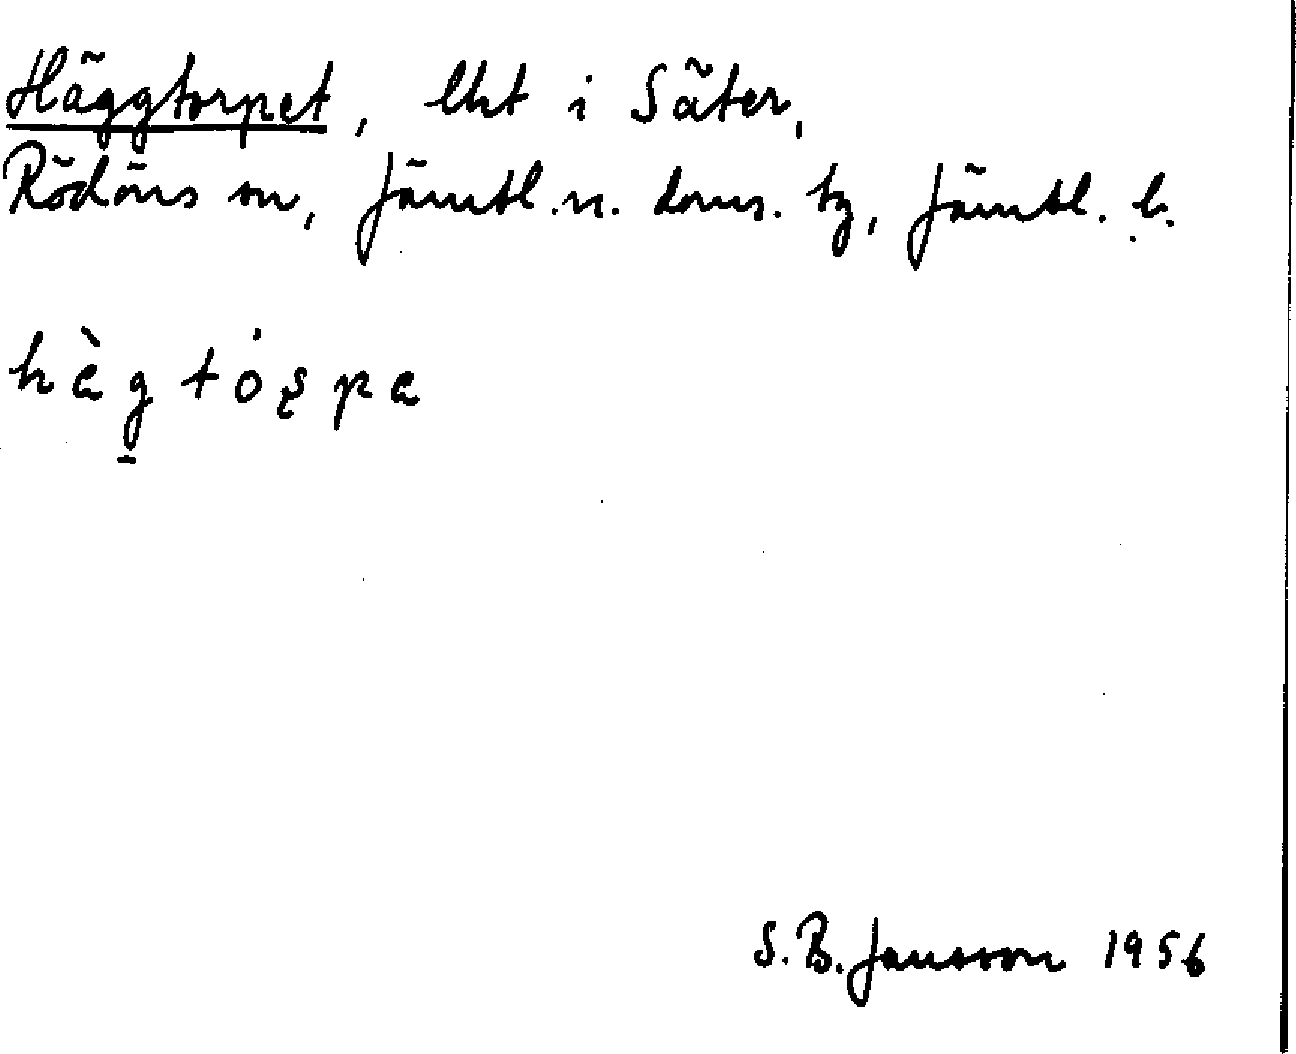 Häggtorpet, lht i Säter,
Rödöns sn, Jämtl. n. doms. tg, Jämtl. l.
hàg tó̇s̨pa
S. B. Jansson 1956